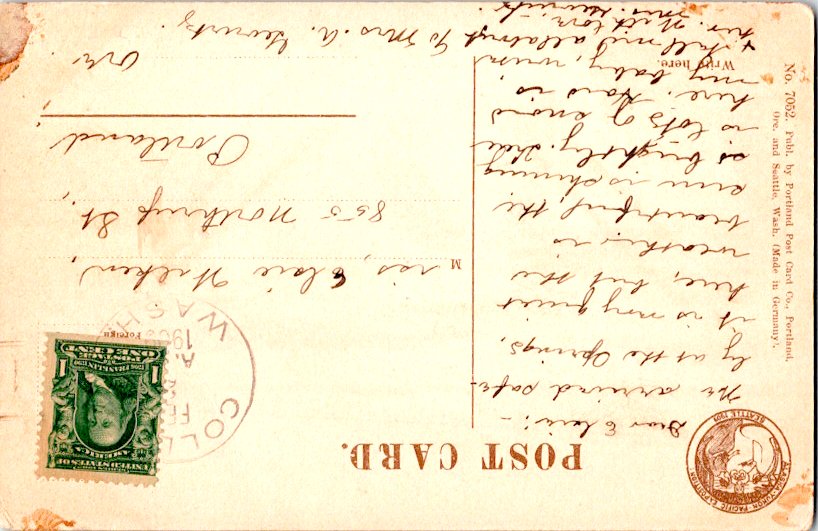 ALASKA-YUKON-PACIFIC EXPOSITION
SEATTLE 1909
POST CARD.
No. 7052. Publ. by Portland Post Card Co., Portland,
Ore. and Seattle, Wash. (Made in Germany).
Dear Elsie:-
We arrived safe-
ly at the Springs,
it is very quiet
here, but the
weather is
beautiful, the
sun is shining
so brightly. There
is lots of snow
here. How is
my baby, write
Write here.
& tell me all about
her. With love
Mrs. Gevurtz.
COLL
FE
A.
190
WASH
SERIES 1902
UNITED STATES OF
AMERICA
1706 FRANKLIN 1790
1 POSTAGE 1
ONE CENT
Foreign
Miss, Elsie Wilken,
855 Northrup St.,
Portland,
Ore.
℅ Mrs. A. Gevurtz.